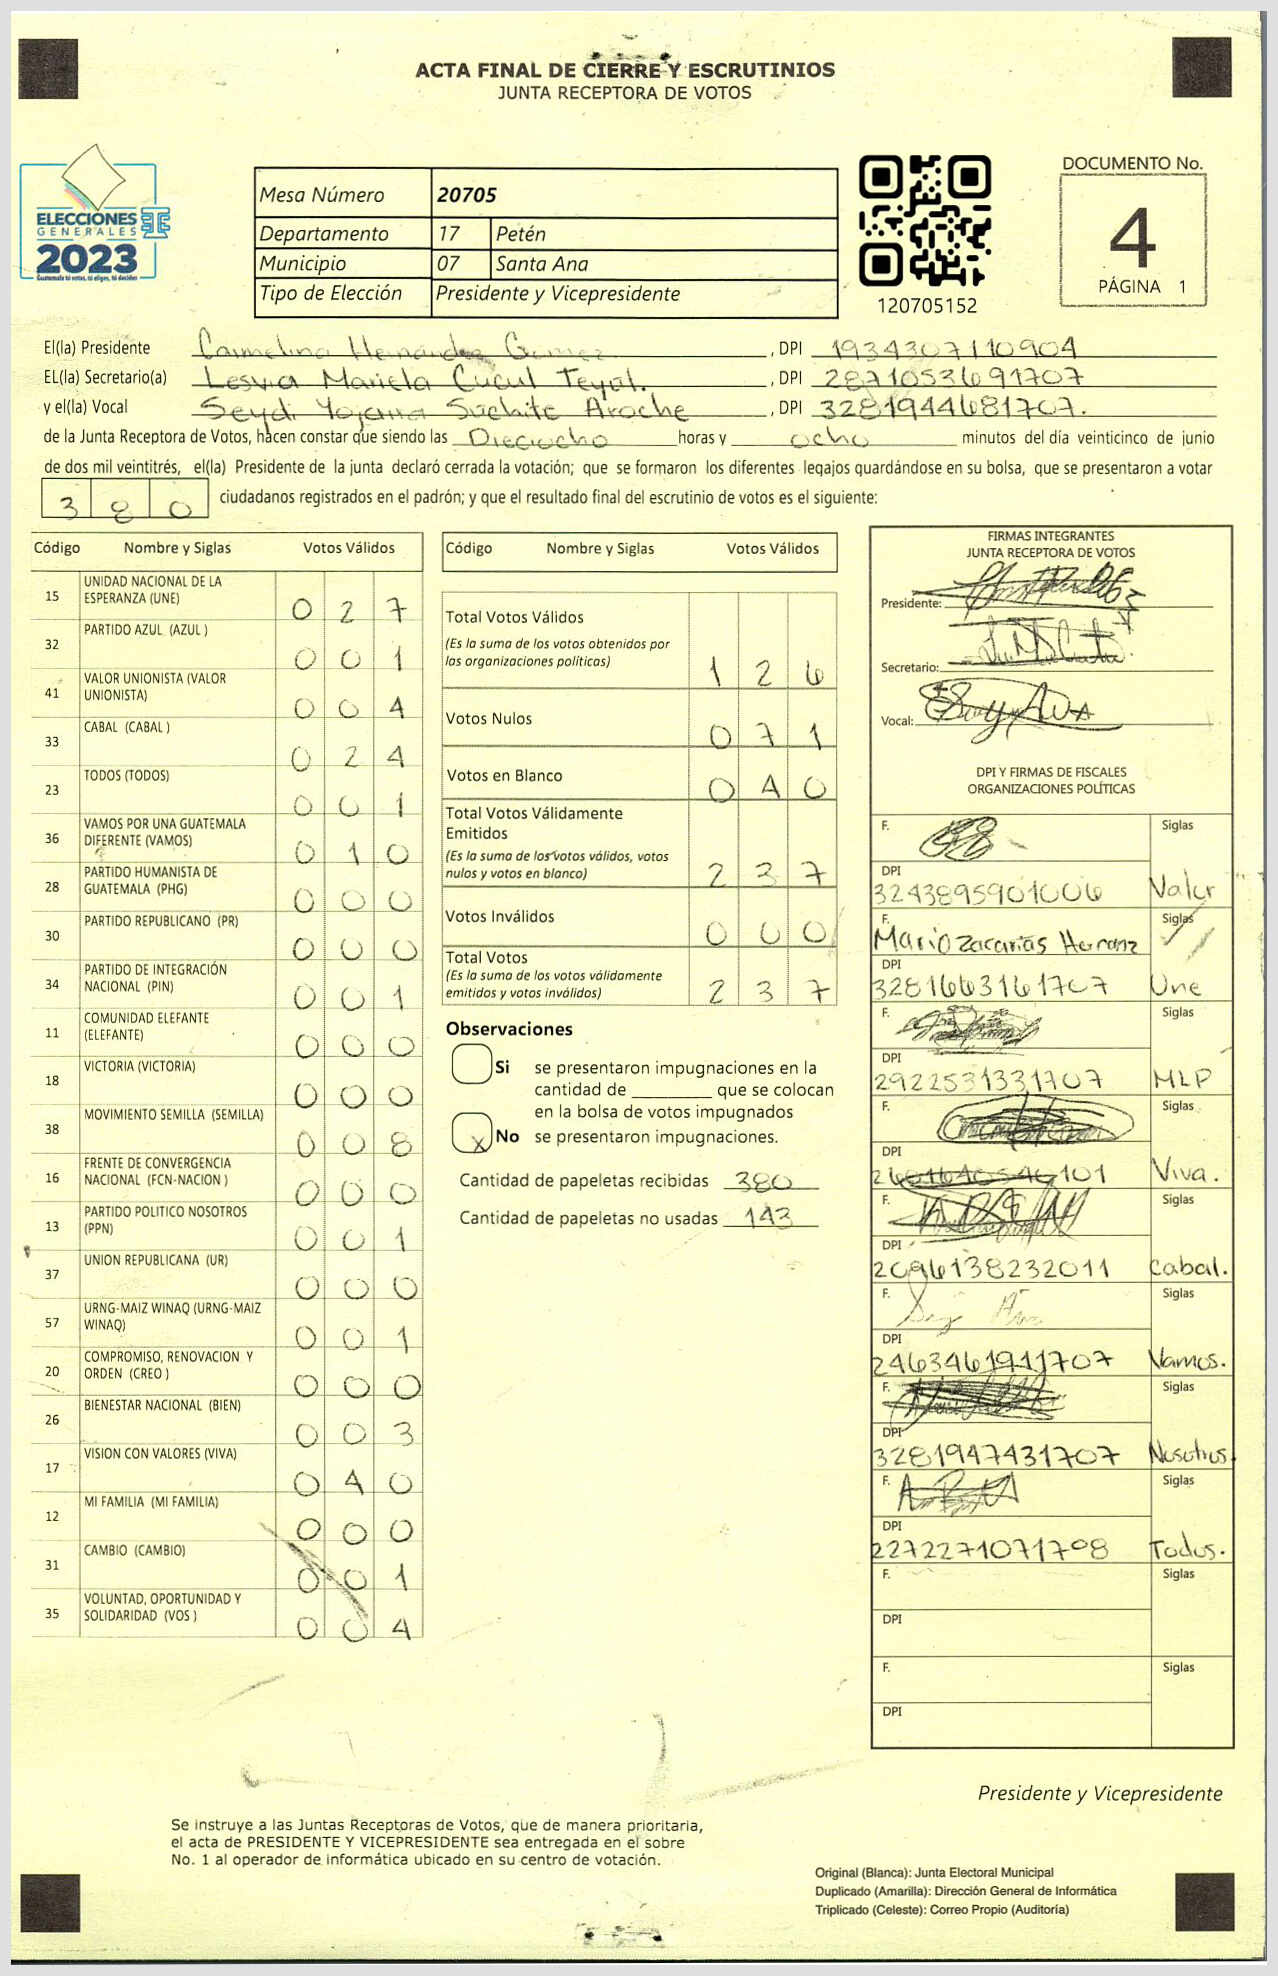 ACTA FINAL DE CIERRE Y ESCRUTINIOS
JUNTA RECEPTORA DE VOTOS
ELECCIONES
GENERALES
2023
Guatemala tú votas, tú eliges, tú decides
Mesa Número 20705
Departamento 17 Petén
Municipio 07 Santa Ana
Tipo de Elección Presidente y Vicepresidente
120705152
DOCUMENTO No.
4
PÁGINA 1
El(la) Presidente Carmelina Hernández Gómez, DPI 1934307110904
EL(la) Secretario(a) Lesvia Mariela Cucul Teyul., DPI 2871053691707
y el(la) Vocal Seydi Yojana Suchite Aroche, DPI 3281944681707.
de la Junta Receptora de Votos, hacen constar que siendo las Dieciocho horas y ocho minutos del día veinticinco de junio
de dos mil veintitrés, el(la) Presidente de la junta declaró cerrada la votación; que se formaron los diferentes legajos guardándose en su bolsa, que se presentaron a votar
380 ciudadanos registrados en el padrón; y que el resultado final del escrutinio de votos es el siguiente:
Código Nombre y Siglas Votos Válidos
15 UNIDAD NACIONAL DE LA ESPERANZA (UNE) 0 2 7
32 PARTIDO AZUL (AZUL ) 0 0 1
41 VALOR UNIONISTA (VALOR UNIONISTA) 0 0 4
33 CABAL (CABAL ) 0 2 4
23 TODOS (TODOS) 0 0 1
36 VAMOS POR UNA GUATEMALA DIFERENTE (VAMOS) 0 1 0
28 PARTIDO HUMANISTA DE GUATEMALA (PHG) 0 0 0
30 PARTIDO REPUBLICANO (PR) 0 0 0
34 PARTIDO DE INTEGRACIÓN NACIONAL (PIN) 0 0 1
11 COMUNIDAD ELEFANTE (ELEFANTE) 0 0 0
18 VICTORIA (VICTORIA) 0 0 0
38 MOVIMIENTO SEMILLA (SEMILLA) 0 0 8
16 FRENTE DE CONVERGENCIA NACIONAL (FCN-NACION ) 0 0 0
13 PARTIDO POLITICO NOSOTROS (PPN) 0 0 1
37 UNION REPUBLICANA (UR) 0 0 0
57 URNG-MAIZ WINAQ (URNG-MAIZ WINAQ) 0 0 1
20 COMPROMISO, RENOVACION Y ORDEN (CREO ) 0 0 0
26 BIENESTAR NACIONAL (BIEN) 0 0 3
17 VISION CON VALORES (VIVA) 0 4 0
12 MI FAMILIA (MI FAMILIA) 0 0 0
31 CAMBIO (CAMBIO) 0 0 1
35 VOLUNTAD, OPORTUNIDAD Y SOLIDARIDAD (VOS ) 0 0 4
Código Nombre y Siglas Votos Válidos
Total Votos Válidos
(Es la suma de los votos obtenidos por
las organizaciones políticas) 1 2 6
Votos Nulos 0 7 1
Votos en Blanco 0 4 0
Total Votos Válidamente
Emitidos
(Es la suma de los votos válidos, votos
nulos y votos en blanco) 2 3 7
Votos Inválidos 0 0 0
Total Votos
(Es la suma de los votos válidamente
emitidos y votos inválidos) 2 3 7
Observaciones
Si se presentaron impugnaciones en la
cantidad de ________ que se colocan
en la bolsa de votos impugnados
x No se presentaron impugnaciones.
Cantidad de papeletas recibidas 380
Cantidad de papeletas no usadas 143
FIRMAS INTEGRANTES
JUNTA RECEPTORA DE VOTOS
Presidente:
Secretario:
Vocal:
DPI Y FIRMAS DE FISCALES
ORGANIZACIONES POLÍTICAS
F. Siglas
DPI
3243895901006 Valor
F. Siglas
Mario Zacarias
DPI
3281663161707 Une
F. Siglas
DPI
2922531331707 MLP
F. Siglas
DPI
2601640546101 Viva.
F. Siglas
DPI
2096138232011 Cabal.
F. Siglas
DPI
2463461911707 Vamos.
F. Siglas
DPI
3281947431707 Nosotros.
F. Siglas
DPI
2272271071708 Todos.
F. Siglas
DPI
F. Siglas
DPI
Presidente y Vicepresidente
Se instruye a las Juntas Receptoras de Votos, que de manera prioritaria,
el acta de PRESIDENTE Y VICEPRESIDENTE sea entregada en el sobre
No. 1 al operador de informática ubicado en su centro de votación.
Original (Blanca): Junta Electoral Municipal
Duplicado (Amarilla): Dirección General de Informática
Triplicado (Celeste): Correo Propio (Auditoría)